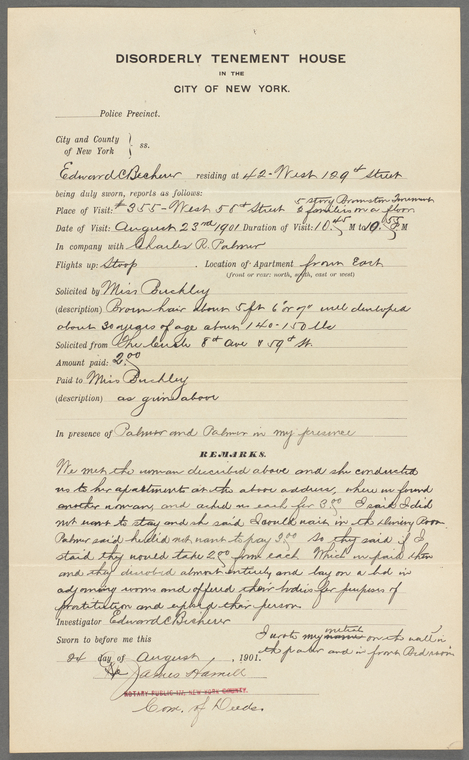 DISORDERLY TENEMENT HOUSE
IN THE
CITY OF NEW YORK.
Police Precinct.
City and County
of New York } ss.
Edward C Becherer residing at 42-West 129th Street
being duly sworn, reports as follows:
5 story Brownston Tenement
Place of Visit: #355-West 58th Street 2 families on a floor
Date of Visit: August 23rd 1901. Duration of Visit: 10.45 P M to 10.55 P M
In company with Charles R. Palmer
Flights up: Stoop . Location of Apartment front East
(front or rear: north, south, east or west)
Solicited by Miss Buckley
(description) Brown hair about 5 ft 6" or 7" well developed
about 30 years of age about 140-150 lbs
Solicited from The curb 8th Ave & 59th St
Amount paid: 2.00
Paid to Miss Buckley
(description) as given above
In presence of Palmer and Palmer in my presence
REMARKS.
We met the woman described above and she conducted
us to her apartments at the above address, where we found
another woman, and asked us each for 3.00 I said I did
not want to stay and she said I could wait in the Room
Palmer said he did not want to pay 3.00 So they said if I
staid they would take 2.00 from each Which we paid them
and they disrobed almost entirely and lay on a bed in
adjoining rooms and offered their bodies for purposes of
prostitution and exposed their person.
Investigator Edward C Becherer
I wrote my initials on the wall in
the parlor and in front Bedroom
Sworn to before me this
24 day of August, 1901.
James Hamill
NOTARY PUBLIC NEW YORK COUNTY.
Com. of Deeds.